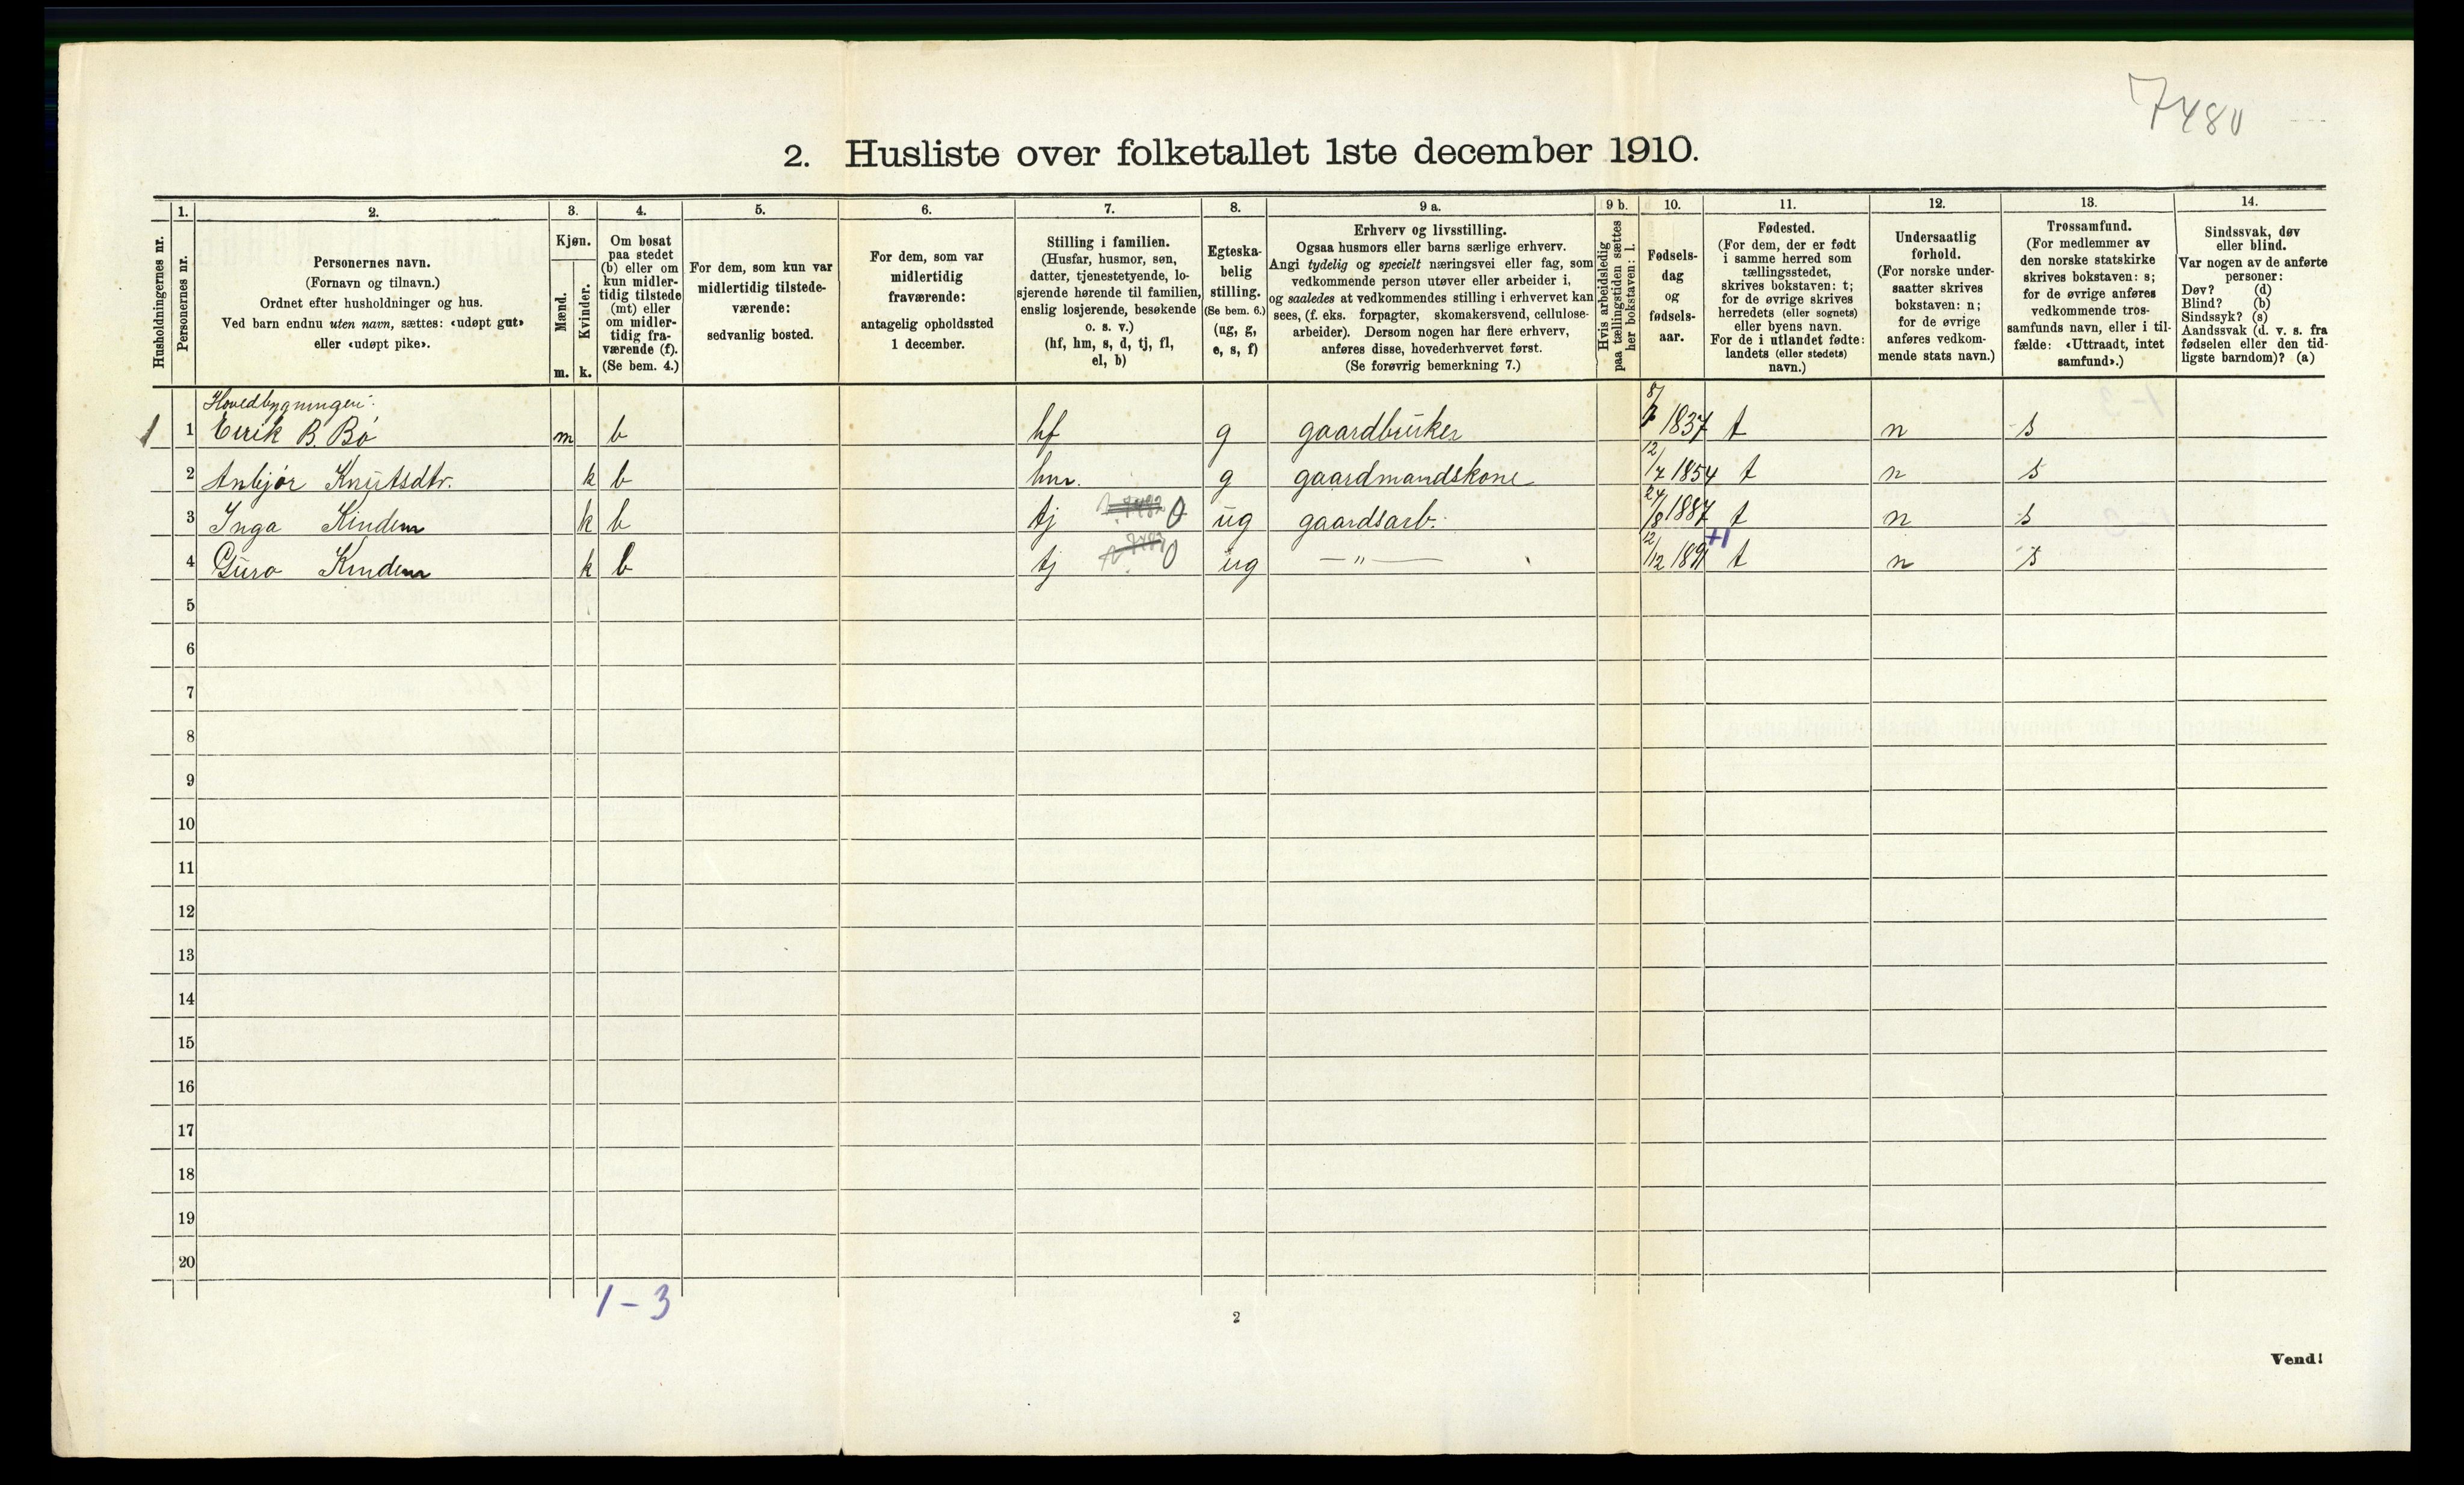 7480
2. Husliste over folketallet 1ste december 1910.
Husholdningernes nr.
1.
Personernes nr.
2.
Personernes navn.
(Fornavn og tilnavn.)
Ordnet efter husholdninger og hus.
Ved barn endnu uten navn, sættes: «udøpt gut»
eller «udøpt pike».
3.
Kjøn.
Mænd.
Kvinder.
m. k.
4.
Om bosat
paa stedet
(b) eller om
kun midler-
tidig tilstede
(mt) eller
om midler-
tidig fra-
værende (f).
(Se bem. 4.)
5.
For dem, som kun var
midlertidig tilstede-
værende:
sedvanlig bosted.
6.
For dem, som var
midlertidig
fraværende:
antagelig opholdssted
1 december.
7.
Stilling i familien.
(Husfar, husmor, søn,
datter, tjenestetyende, lo-
sjerende hørende til familien,
enslig losjerende, besøkende
o. s. v.)
(hf, hm, s, d, tj, fl,
el, b)
8.
Egteska-
belig
stilling.
(Se bem. 6.)
(ug, g,
e, s, f)
9 a.
Erhverv og livsstilling.
Ogsaa husmors eller barns særlige erhverv.
Angi tydelig og specielt næringsvei eller fag, som
vedkommende person utøver eller arbeider i,
og saaledes at vedkommendes stilling i erhvervet kan
sees, (f. eks. forpagter, skomakersvend, cellulose-
arbeider). Dersom nogen har flere erhverv,
anføres disse, hovederhvervet først.
(Se forøvrig bemerkning 7.)
9 b.
Hvis arbeidsledig
paa tællingstiden sættes
her bokstaven: l.
10.
Fødsels-
dag
og
fødsels-
aar.
11.
Fødested.
(For dem, der er født
i samme herred som
tællingsstedet,
skrives bokstaven: t;
for de øvrige skrives
herredets (eller sognets)
eller byens navn.
For de i utlandet fødte:
landets (eller stedets)
navn.)
12.
Undersaatlig
forhold.
(For norske under-
saatter skrives
bokstaven: n;
for de øvrige
anføres vedkom-
mende stats navn.)
13.
Trossamfund.
(For medlemmer av
den norske statskirke
skrives bokstaven: s;
for de øvrige anføres
vedkommende tros-
samfunds navn, eller i til-
fælde: «Uttraadt, intet
samfund».)
14.
Sindssvak, døv
eller blind.
Var nogen av de anførte
personer:
Døv? (d)
Blind? (b)
Sindssyk? (s)
Aandssvak (d. v. s. fra
fødselen eller den tid-
ligste barndom)? (a)
Hovedbygningen:
1 1 Eirik B. Bø m b hf g gaardbruker 1837 t n s
2 Anbjør Knutsdtr. k b hm. g gaardmandskone 12/7 1854 t n s
3 Inga Kindem k b tj 0 ug gaardsarb. 24/8 1887 t n s
4 Guro Kindem k b tj 0 ug —"— 12/12 1891 +1 t n s
5
6
7
8
9
10
11
12
13
14
15
16
17
18
19
20
1 - 3
2
Vend!